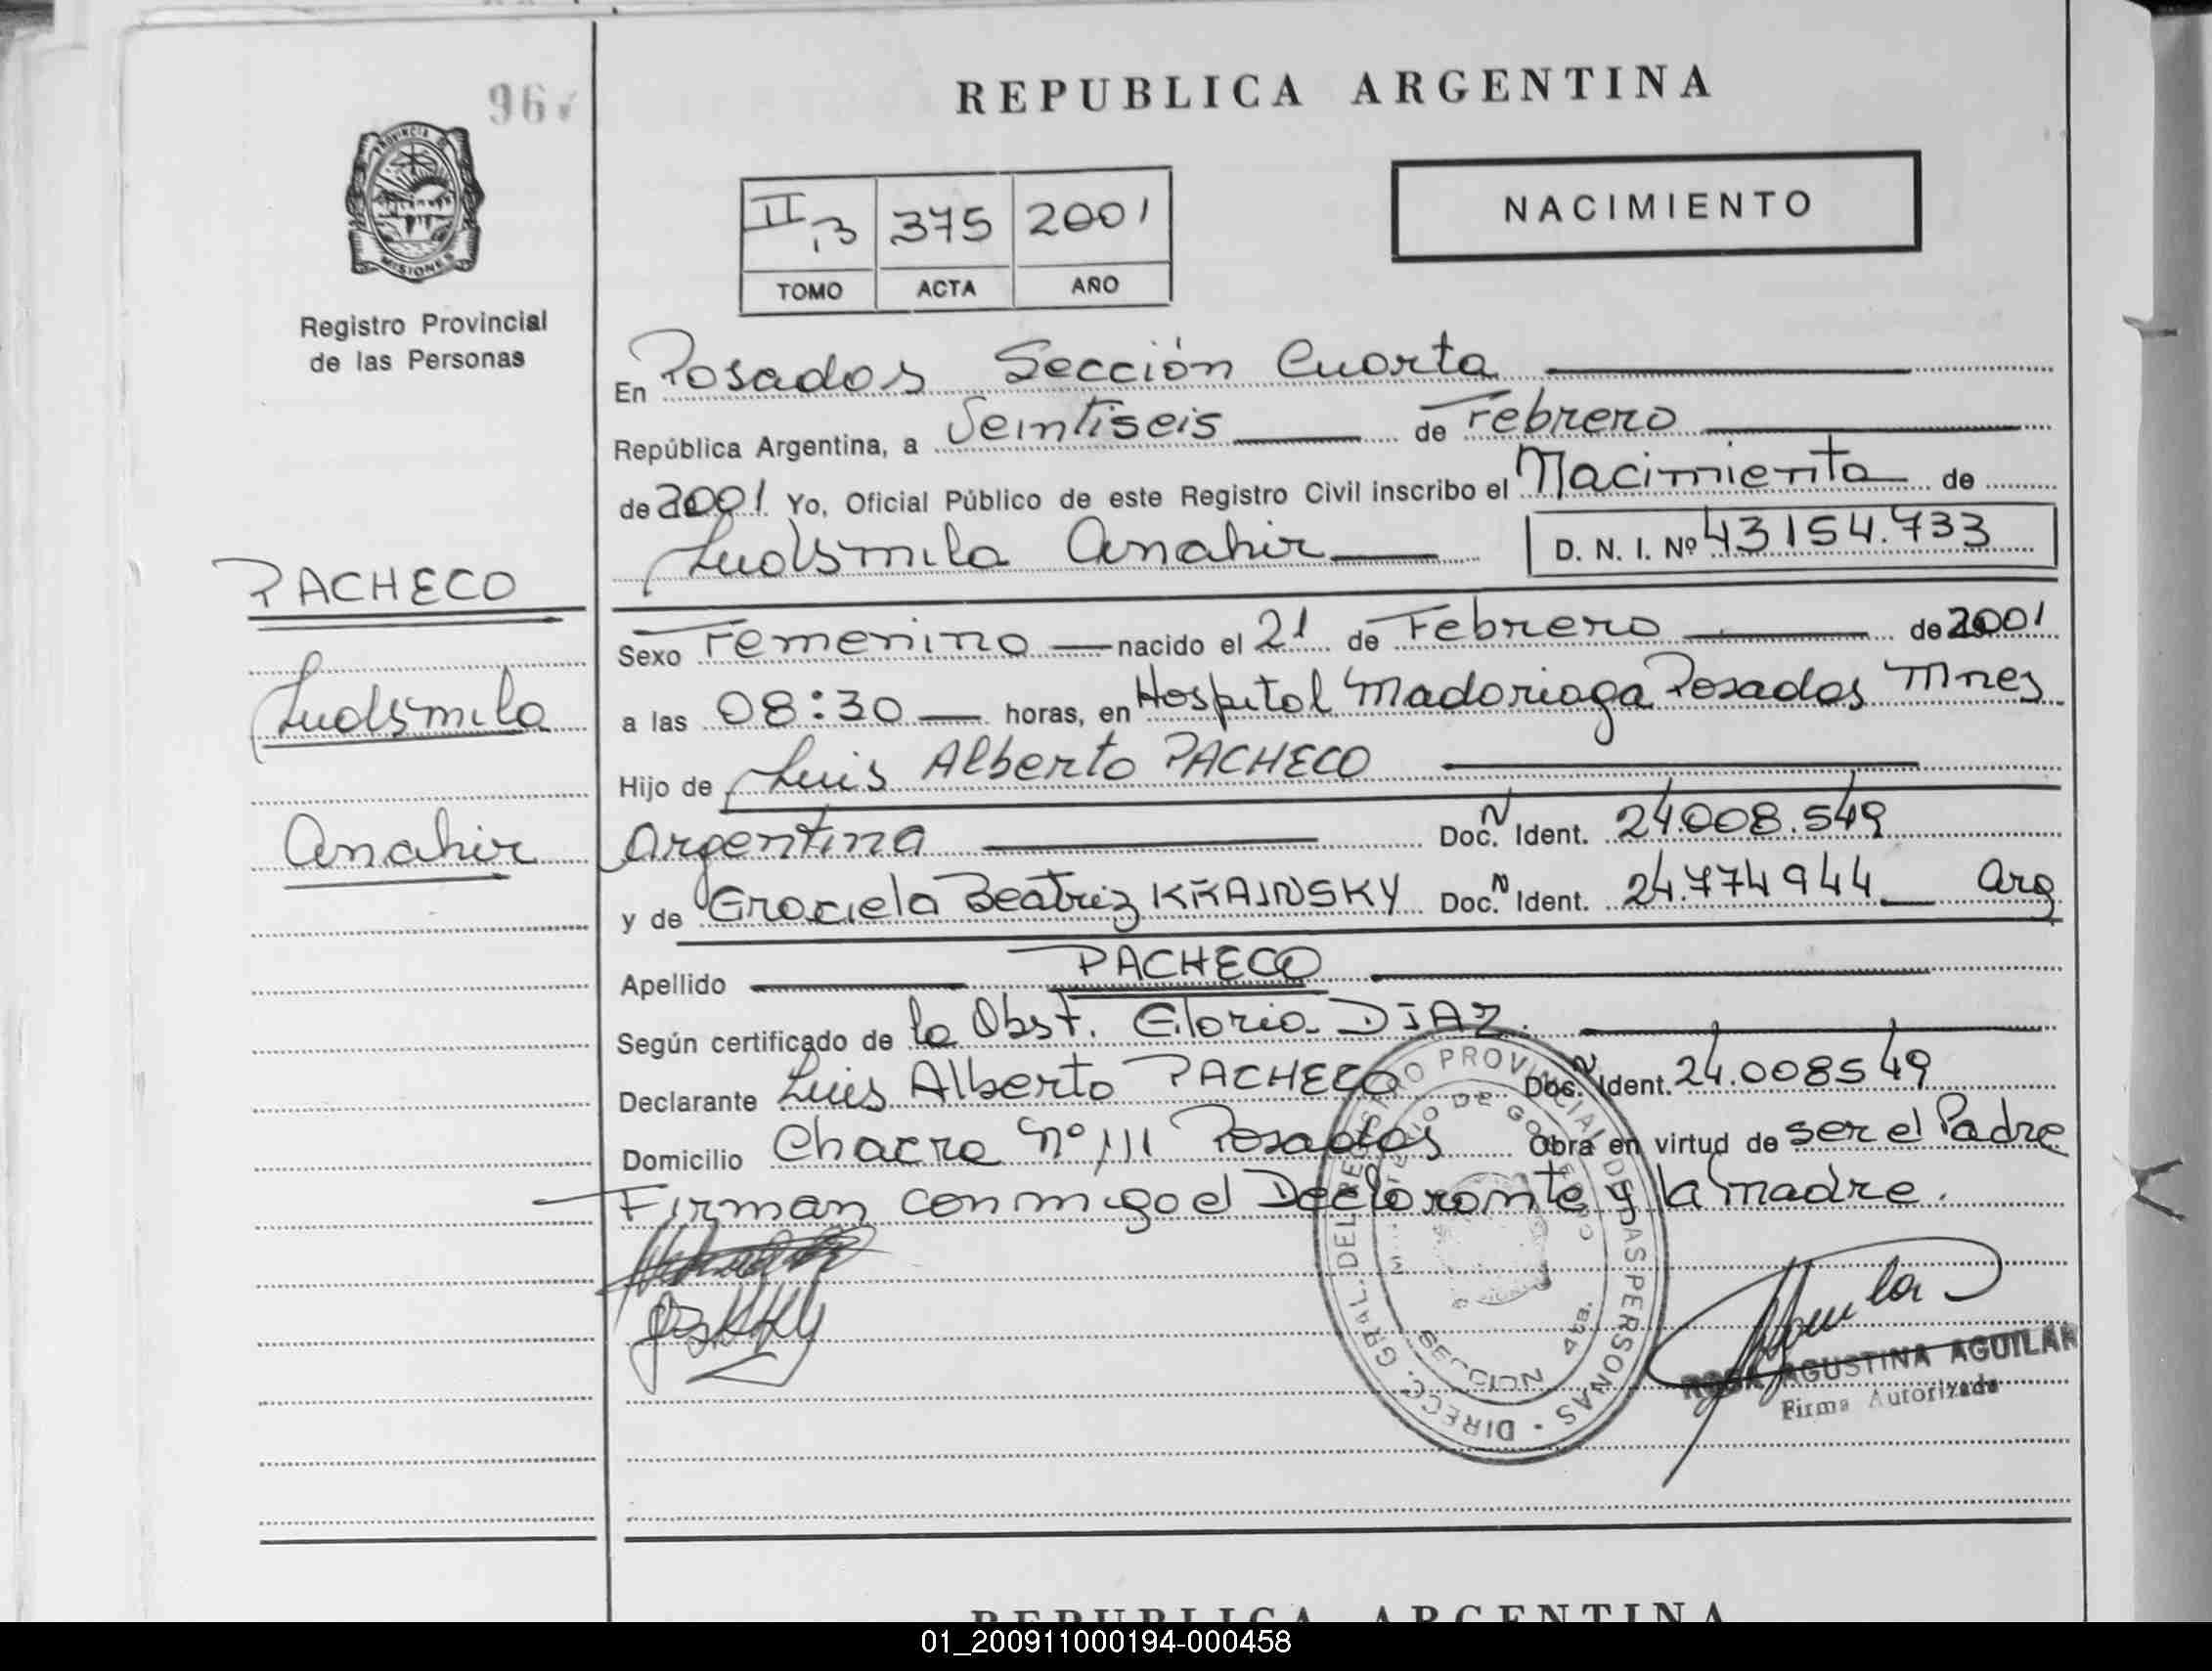 96
REPUBLICA ARGENTINA
PROVINCIA D
MISIONES
Registro Provincial
de las Personas
II 13 375 2001
TOMO ACTA AÑO
NACIMIENTO
En Posadas Sección Cuarta
República Argentina, a Veintiseis de Febrero
de 2001 Yo, Oficial Público de este Registro Civil inscribo el Nacimiento de
Ludsmila Anahir D. N. I. Nº 43154.733
PACHECO
Ludsmila
Anahir
Sexo Femenino nacido el 21 de Febrero de 2001
a las 08:30 horas, en Hospital Madariaga Posadas Mnes
Hijo de Luis Alberto PACHECO
Argentina Doc. N Ident. 24.008.549
y de Graciela Beatriz KRAINSKY Doc. N Ident. 24.774944 Arg
Apellido PACHECO
Según certificado de la Obst. Gloria DIAZ.
Declarante Luis Alberto PACHECO Doc. N Ident. 24.008549
Domicilio Chacra Nº 111 Posadas Obra en virtud de ser el Padre
Firman conmigo el Declarante y la madre.
DIRECC. GRAL. DEL REGISTRO PROVINCIAL DE LAS PERSONAS
MINISTERIO DE GOBIERNO
SECCION 4ta.
Aguilar
ROSA AGUSTINA AGUILAR
Firma Autorizada
REPUBLICA ARGENTINA
01_200911000194-000458